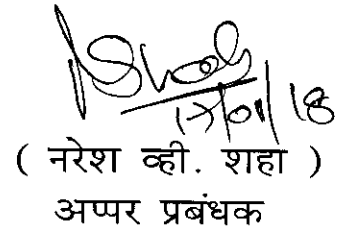 17/01/18
( नरेश व्ही. शहा )
अप्पर प्रबंधक